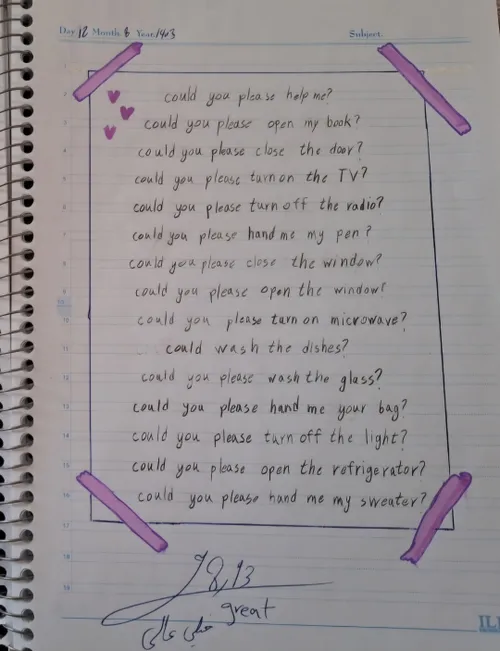 Day 12 Month 8 Year 1403 Subject:
could you please help me?
could you please open my book?
could you please close the door?
could you please turn on the TV?
could you please turn off the radio?
could you please hand me my pen?
could you please close the window?
could you please open the window?
could you please turn on microwave?
could wash the dishes?
could you please wash the glass?
could you please hand me your bag?
could you please turn off the light?
could you please open the refrigerator?
could you please hand me my sweater?
great
خیلی عالی